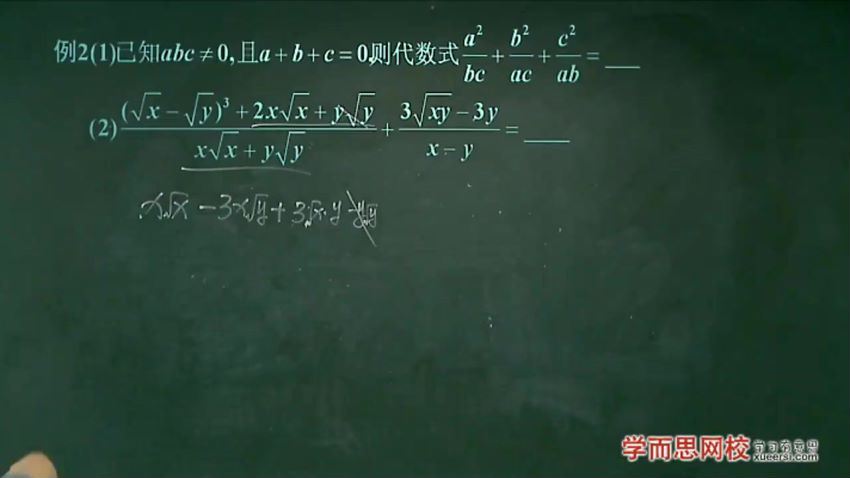 例2(1)已知abc≠0,且a+b+c=0,则代数式a²/bc+b²/ac+c²/ab=___
(2)((√x-√y)³+2x√x+y√y)/(x√x+y√y)+(3√xy-3y)/(x-y)=___
x√x-3x√y+3√x·y-y√y
学而思网校
学习有意思
xueersi.com